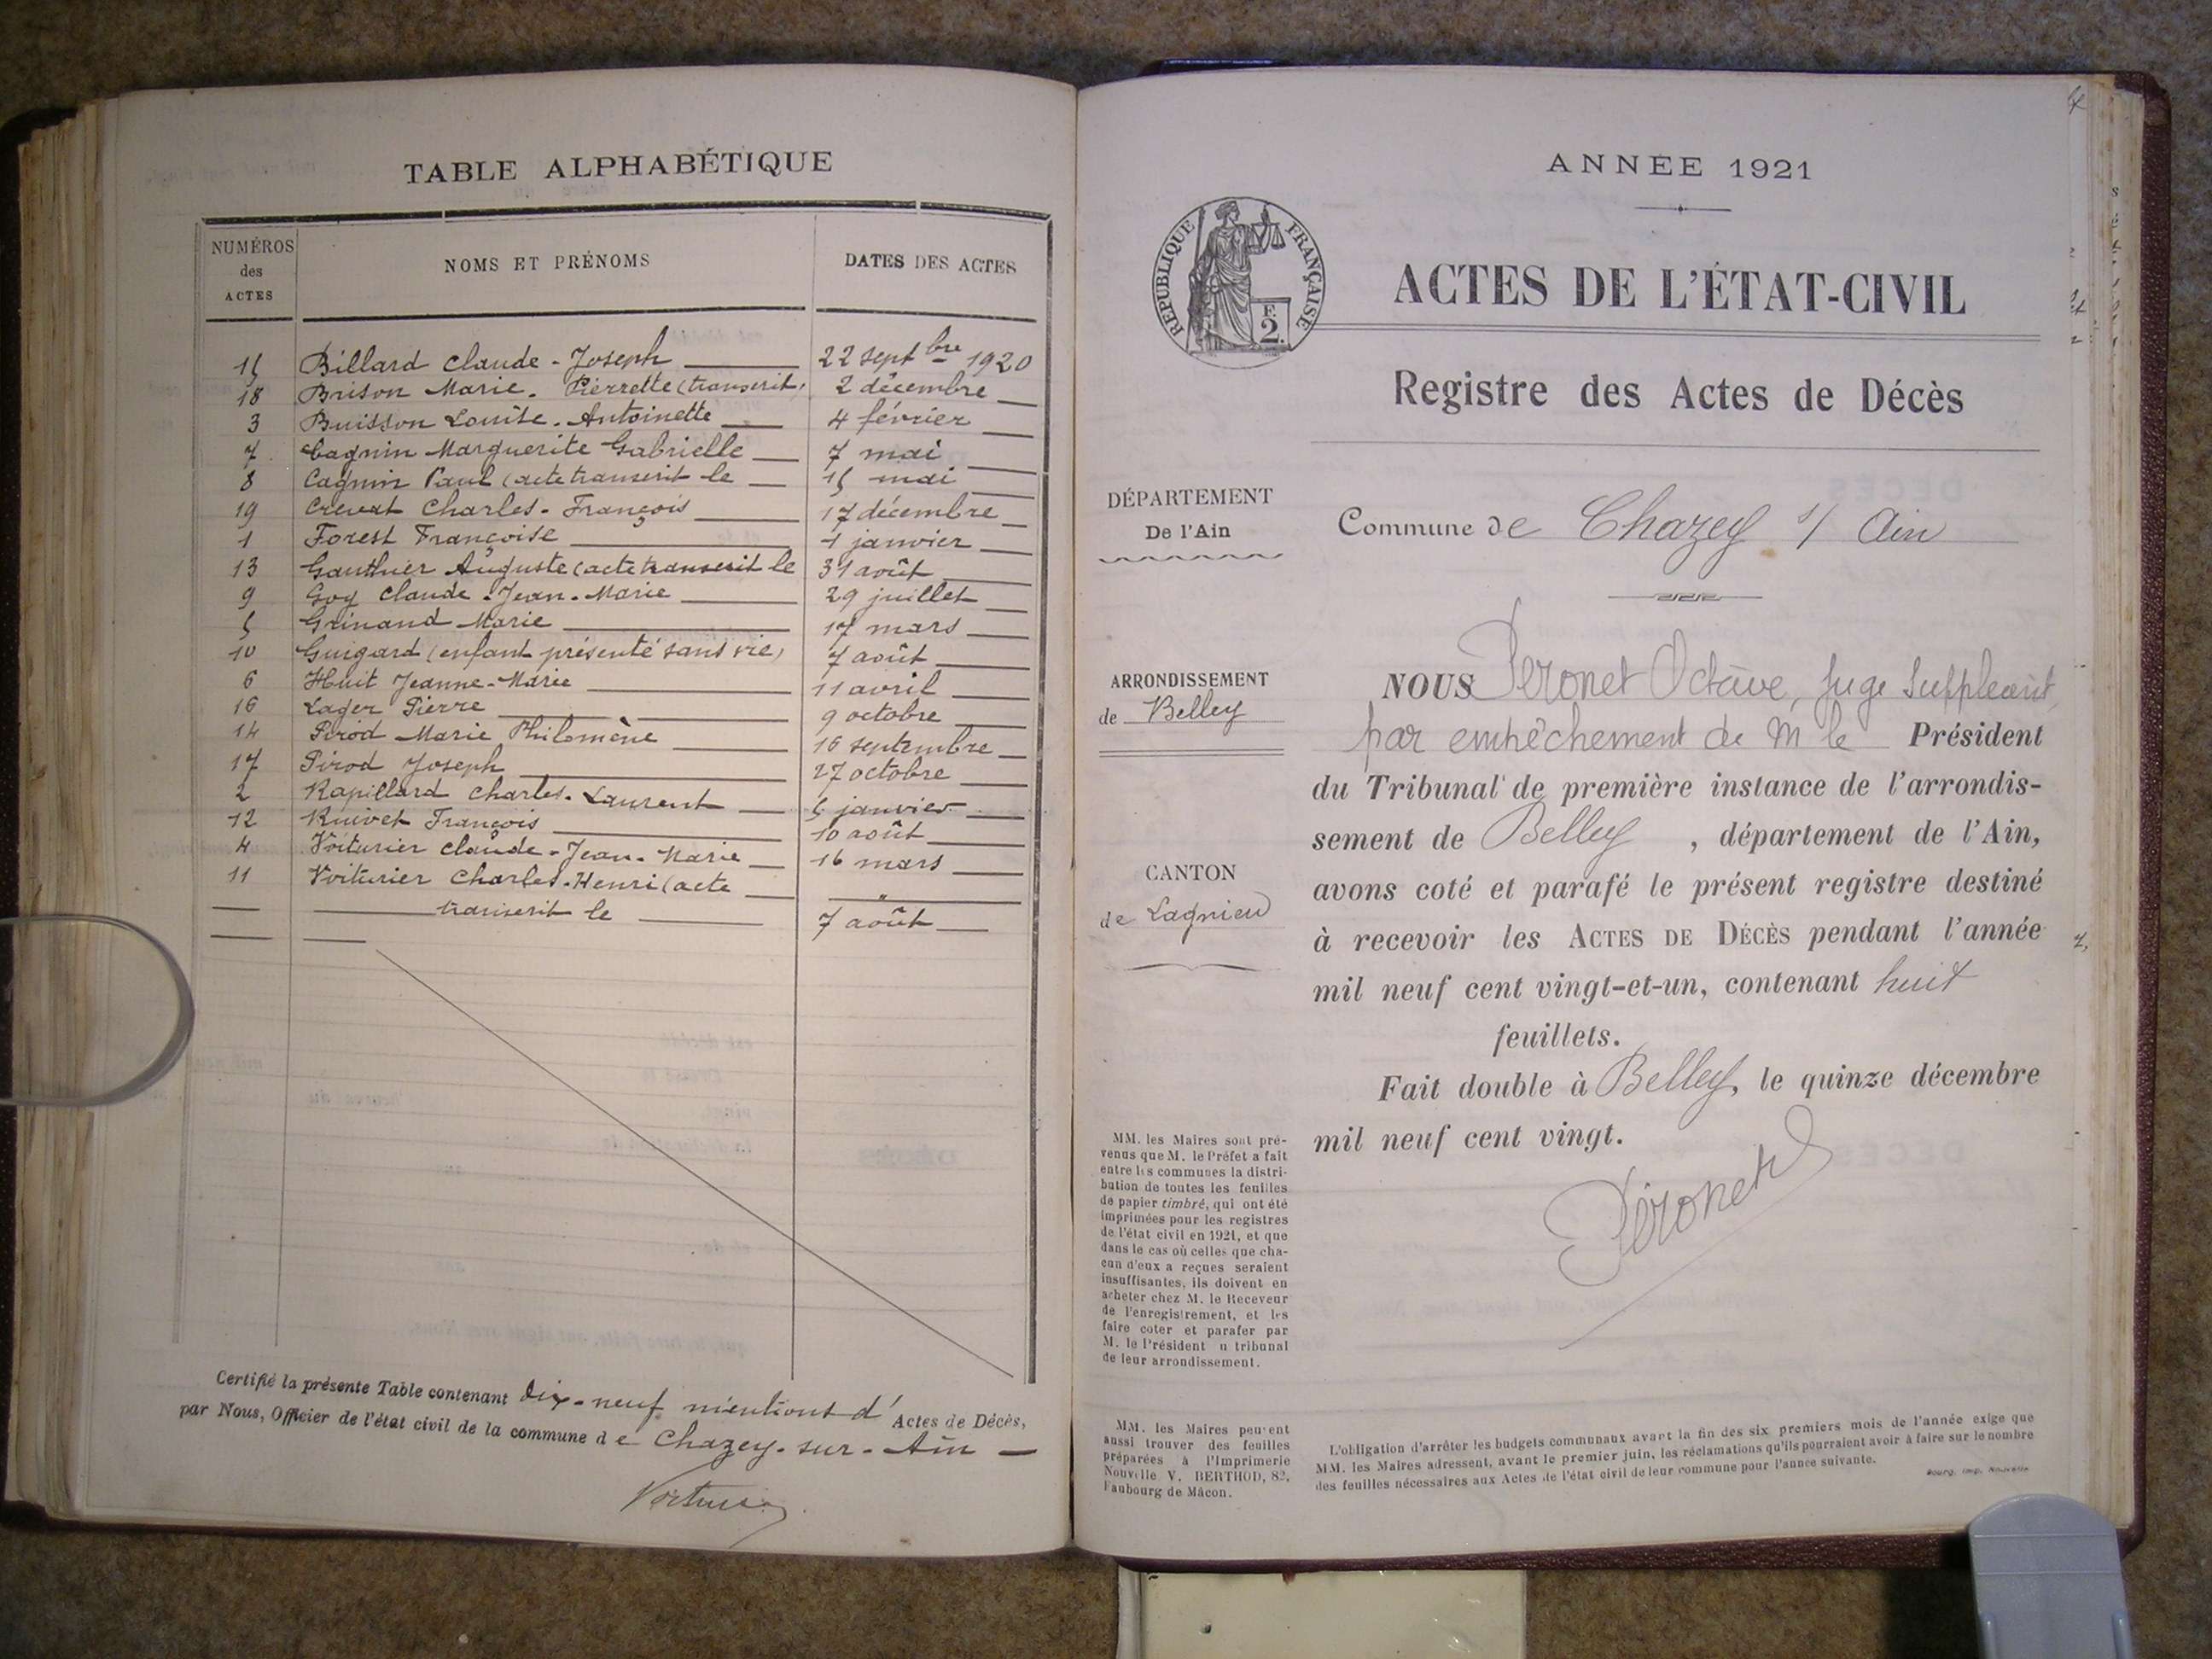 TABLE ALPHABÉTIQUE
NUMÉROS des ACTES
NOMS ET PRÉNOMS
DATES DES ACTES
15 Billard Claude-Joseph 22 septbre 1920
18 Brison Marie-Pierrette (transcrit) 2 décembre
3 Buisson Louise-Antoinette 4 février
7 Cagnin Marguerite Gabrielle 7 mai
8 Cagnin Paul (acte transcrit le 15 mai
19 Crevat Charles-François 17 décembre
1 Forest Françoise 1 janvier
13 Gauthier Auguste (acte transcrit le 31 août
9 Goy Claude-Jean-Marie 29 juillet
5 Grinand Marie 17 mars
10 Guigard (enfant présenté sans vie) 7 août
6 Huit Jeanne-Marie 11 avril
16 Lager Pierre 9 octobre
14 Pirod Marie Philomène 16 septembre
17 Pirod Joseph 27 octobre
2 Rapillard Charles-Laurent 5 janvier
12 Ruivet François 10 août
4 Voiturier Claude-Jean-Marie 16 mars
11 Voiturier Charles-Henri (acte "
transcrit le 7 août
Certifié la présente Table contenant dix-neuf mentions d' Actes de Décès,
par Nous, Officier de l'état civil de la commune de Chazey-sur-Ain
Voiturier
ANNÉE 1921
RÉPUBLIQUE FRANÇAISE
F. 2.
ACTES DE L'ÉTAT-CIVIL
Registre des Actes de Décès
DÉPARTEMENT
De l'Ain
Commune de Chazey s/ Ain
ARRONDISSEMENT
de Belley
CANTON
de Lagnieu
NOUS Péronet Octave, Juge Suppléant,
par empêchement de M le Président
du Tribunal de première instance de l'arrondis-
sement de Belley, département de l'Ain,
avons coté et parafé le présent registre destiné
à recevoir les ACTES DE DÉCÈS pendant l'année
mil neuf cent vingt-et-un, contenant huit
feuillets.
Fait double à Belley, le quinze décembre
mil neuf cent vingt.
Péronet
MM. les Maires sont pré-
venus que M. le Préfet a fait
entre les communes la distri-
bution de toutes les feuilles
de papier timbré, qui ont été
imprimées pour les registres
de l'état civil en 1921, et que
dans le cas où celles que cha-
cun d'eux a reçues seraient
insuffisantes, ils doivent en
acheter chez M. le Receveur
de l'enregistrement, et les
faire coter et parafer par
M. le Président u tribunal
de leur arrondissement.
MM. les Maires peuvent
aussi trouver des feuilles
préparées à l'Imprimerie
Nouvelle V. BERTHOD, 82,
Faubourg de Mâcon.
L'obligation d'arrêter les budgets communaux avant la fin des six premiers mois de l'année exige que
MM. les Maires adressent, avant le premier juin, les réclamations qu'ils pourraient avoir à faire sur le nombre
des feuilles nécessaires aux Actes de l'état civil de leur commune pour l'année suivante.
Bourg, Imp. Nouvelle